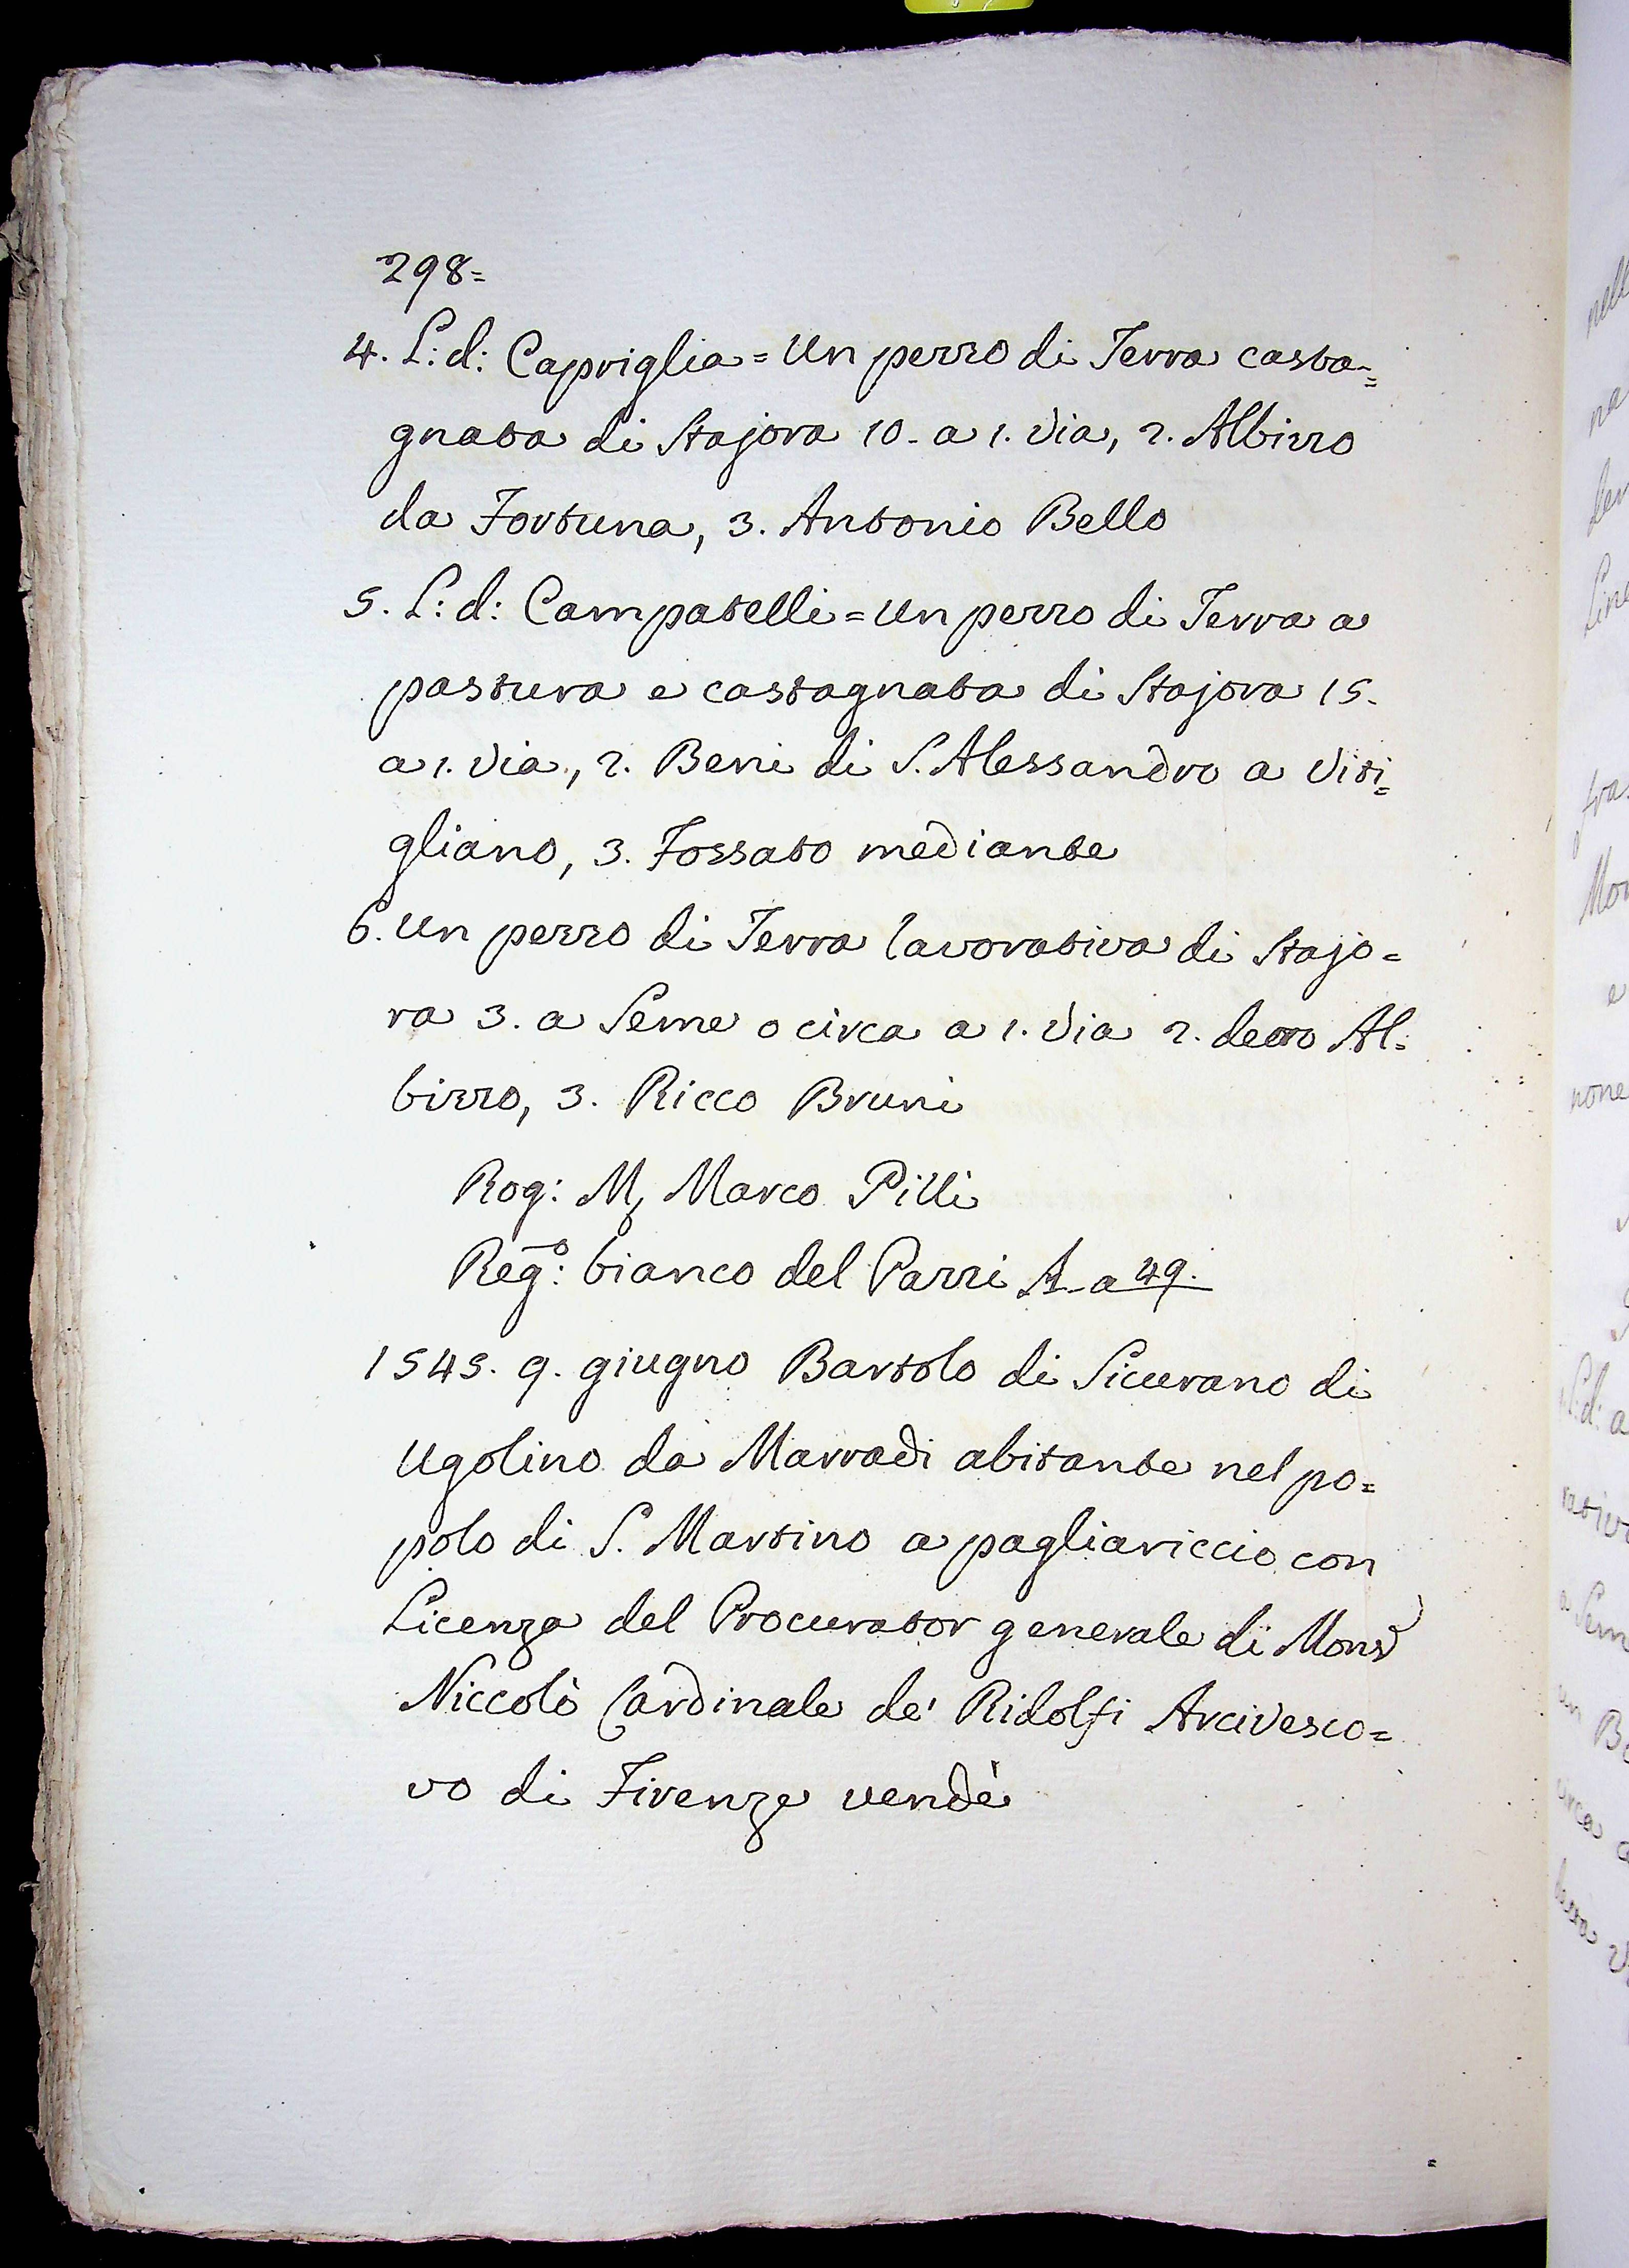 298=
4. L: d: Capriglia = Un pezzo di Terra casta=
gnata di Stajora 10. a 1. Via, 2. Albizzo
da Fortuna, 3. Antonio Bello
5. L: d: Campatelli = Un pezzo di Terra a
pastura e castagnata di Stajora 15.
a 1. Via, 2. Beni di S. Alessandro a Viti=
gliano, 3. Fossato mediante
6. Un pezzo di Terra lavorativa di Stajo=
ra 3. a Seme o circa a 1. Via 2. detto Al=
bizzo, 3. Ricco Bruni
Rog: M, Marco Pilli
Reg:º bianco del Pazzi A a 49.
1545. 9. giugno Bartolo di Sicurano di
Ugolino da Marradi abitante nel po=
polo di S. Martino a pagliariccio con
Licenza del Procurator generale di Monsr
Niccolò Cardinale de' Ridolfi Arcivesco=
vo di Firenze vendè